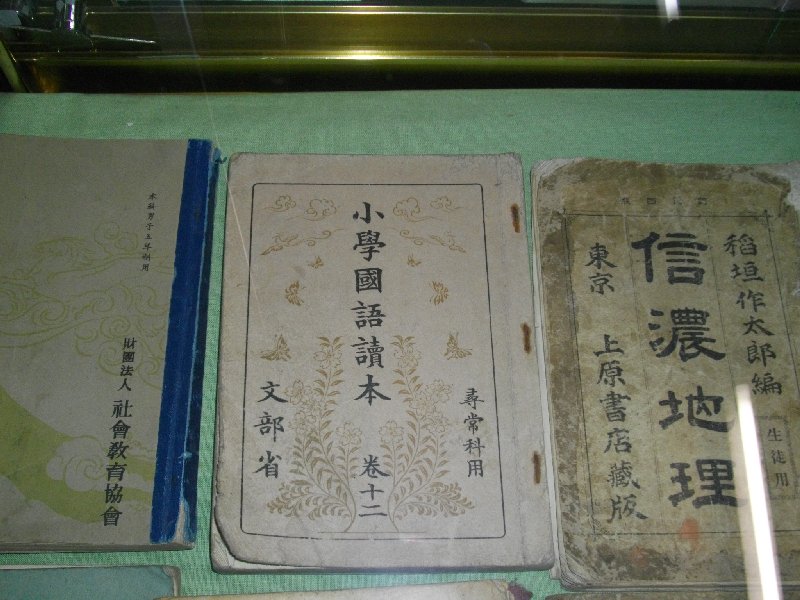 本科男子五年制用
財團法人
社會教育協會
小學國語讀本
尋常科用
卷十二
文部省
稻垣作太郎編
信濃地理
生徒用
東京
上原書店藏版